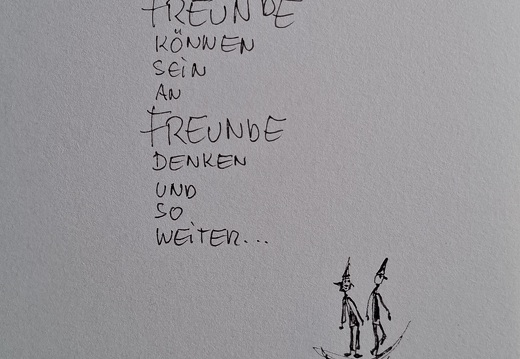 FREUNDE
KÖNNEN
SEIN
AN
FREUNDE
DENKEN
UND
SO
WEITER...